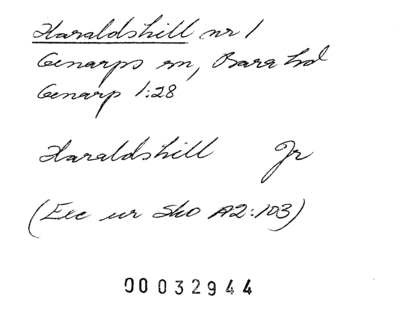 Haraldshill nr 1
Genarps sn, Bara hd
Genarp 1:28
Haraldshill Jr
(Exc ur Sko A2:103)
00032944